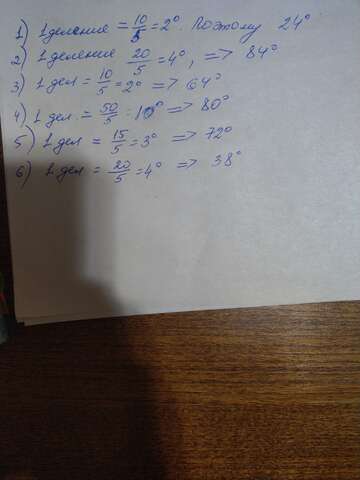 1) 1 деление = 10/5 = 2°. Поэтому 24°
2) 1 деление 20/5 = 4°, => 84°
3) 1 дел = 10/5 = 2° => 64°
4) 1 дел. = 50/5 = 10° => 80°
5) 1 дел = 15/5 = 3° => 72°
6) 1 дел = 20/5 = 4° => 38°